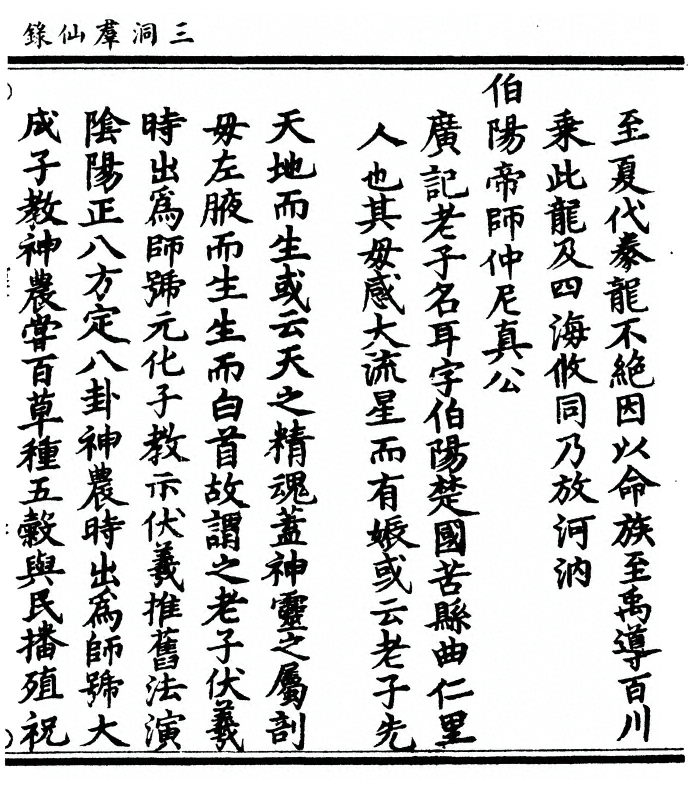 三洞羣仙錄
至夏代豢龍不絕因以命族至禹導百川
乘此龍及四海攸同乃放河汭
伯陽帝師仲尼真公
廣記老子名耳字伯陽楚國苦縣曲仁里
人也其毋感大流星而有娠或云老子先
天地而生或云天之精魂蓋神靈之屬剖
毋左腋而生生而白首故謂之老子伏羲
時出爲師號元化子教示伏羲推舊法演
陰陽正八方定八卦神農時出爲師號大
成子教神農嘗百草種五穀與民播殖祝